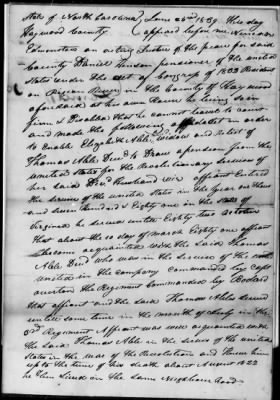 State of North Carolina June 22nd 1839 This day
Haywood County appeared before me Ninian
Edmonston an acting Justice of the peace for said
County Daniel Vinson pensioner of the united
States under the act of Congress of 1832 Resident
on Pigeon River in the County of Haywood
aforesaid at his own House he being so in
firm & Feeble that he cannot leave to court
and made the following affidavit in order
to Enable Elizabeth Able widow and relict of
Thomas Able Decd to Draw a pension from the
united States for the Revolutionary Services of
her said Decd Husband viz affiant Entered
the Service of the united States in the year one thou
sand Seven hundred & Eighty one in the State of
Virginia he served untill Eighty two October
that about the 10 day of march Eighty one affiant
become acquainted with the said Thomas
Able Decd who was in the Service of the
united in the company commanded by Capt
the Regiment Commanded by
that affiant and the said Thomas Able served
untill some time in the month of July in the
3rd Regiment Affiant was well acquainted with
the said Thomas Able in the Service of the united
States in the war of the Revolution and knew him
up to the time of his death about August 1822
he then lived in the same Neighborhood